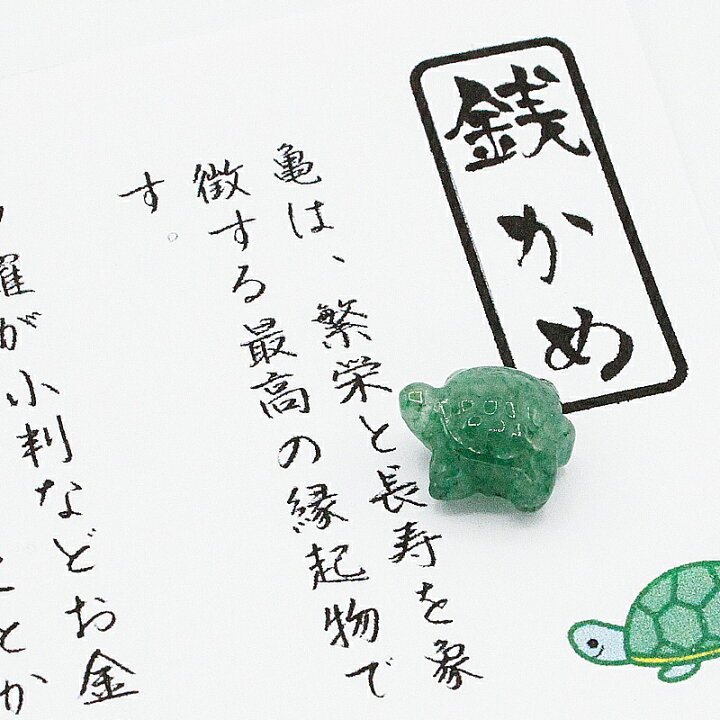 銭かめ
亀は、繁栄と長寿を象
徴する最高の縁起物で
す。
羅が小判などお金
とか